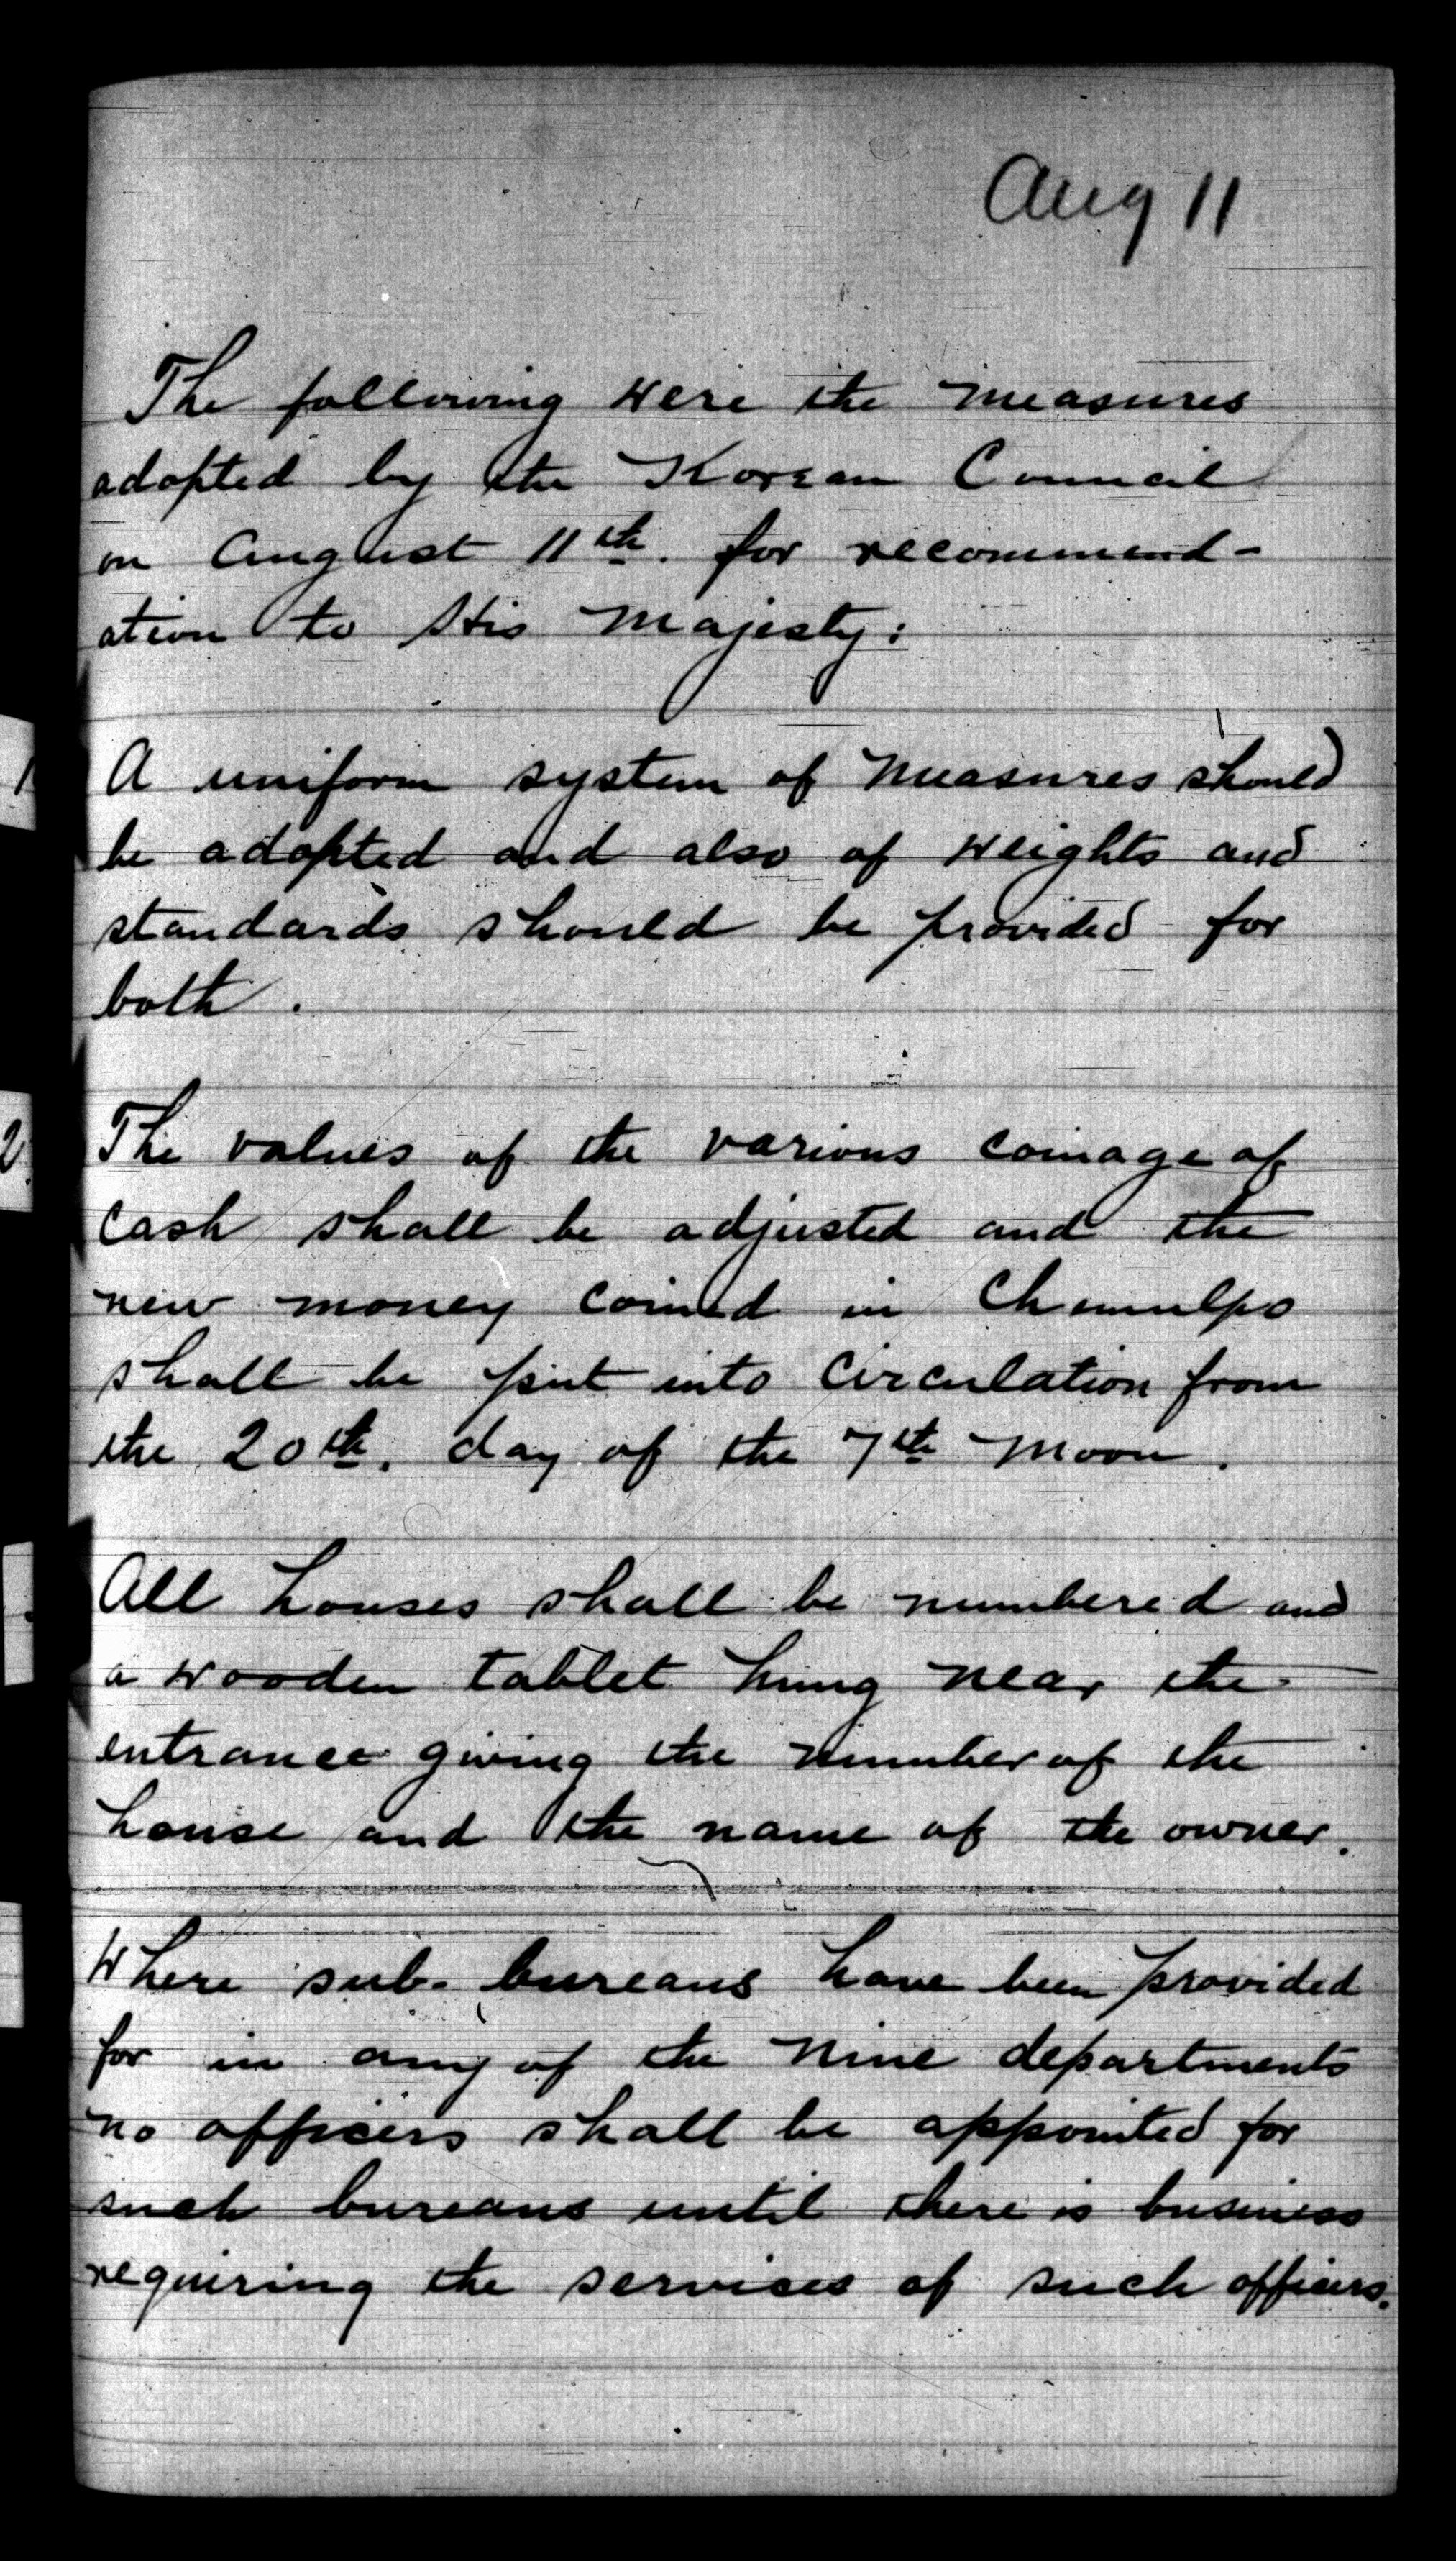 Aug 11
The following were the measures
adopted by the Korean Council
on August 11th. for recommend-
ation to His Majesty:
1 A uniform system of measures should
be adopted and also of weights and
standards should be provided for
both.
2 The values of the various coinage of
Cash shall be adjusted and the
new money coined in Chemulpo
shall be put into circulation from
the 20th. day of the 7th Moon.
All houses shall be numbered and
a wooden tablet hung near the
entrance giving the number of the
house and the name of the owner.
Where sub-bureaus have been provided
for in any of the nine departments
no officers shall be appointed for
such bureaus until there is business
requiring the services of such officers.